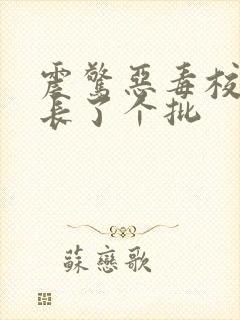 震驚惡毒校
長了个批
蘇戀歌